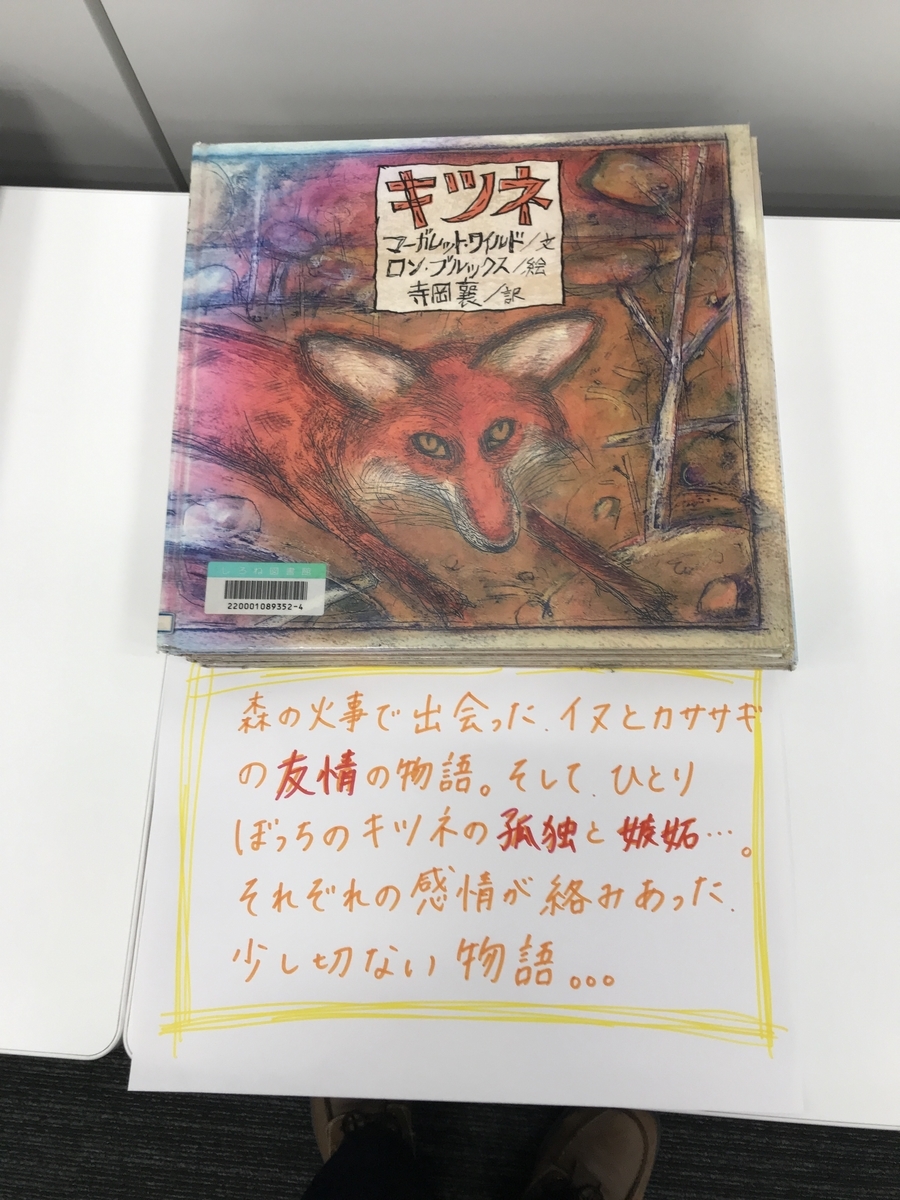 キツネ
マーガレット・ワイルド/文
ロン・ブルックス/絵
寺岡襄/訳
しろね図書館
220001089352-4
森の火事で出会った、イヌとカササギ
の友情の物語。そして、ひとり
ぼっちのキツネの孤独と嫉妬…。
それぞれの感情が絡みあった、
少し切ない物語。。。